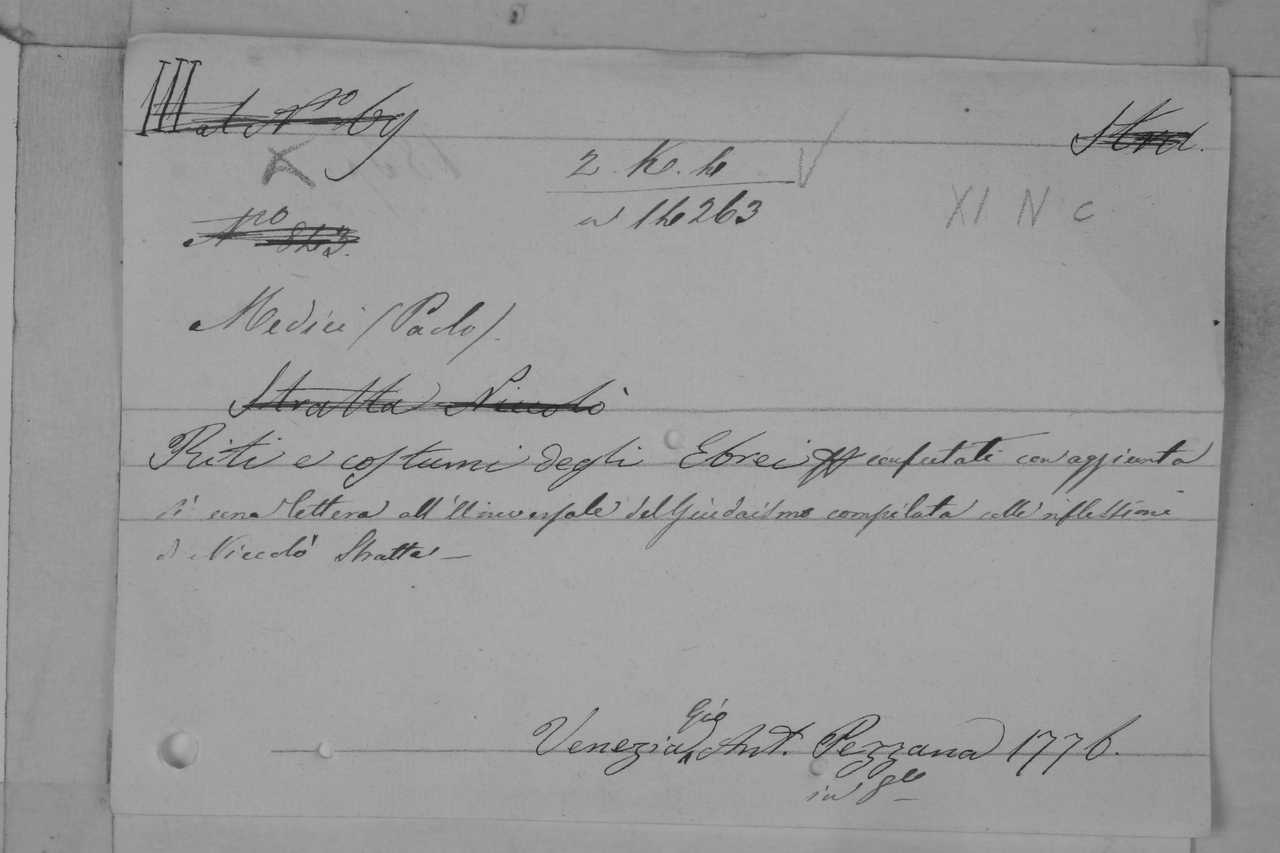 III al Nro 69 Strd.
2. K. h
XI N c
a 14263
Nro 843.
Medici (Paolo).
Stratta Niccolò
Riti e costumi degli Ebrei confutati con aggiunta
di una lettera all'Universale del Giudaismo compilata colle riflessioni
di Niccolò Stratta —
Gio
Venezia Ant. Pezzana 1776.
in 8vo